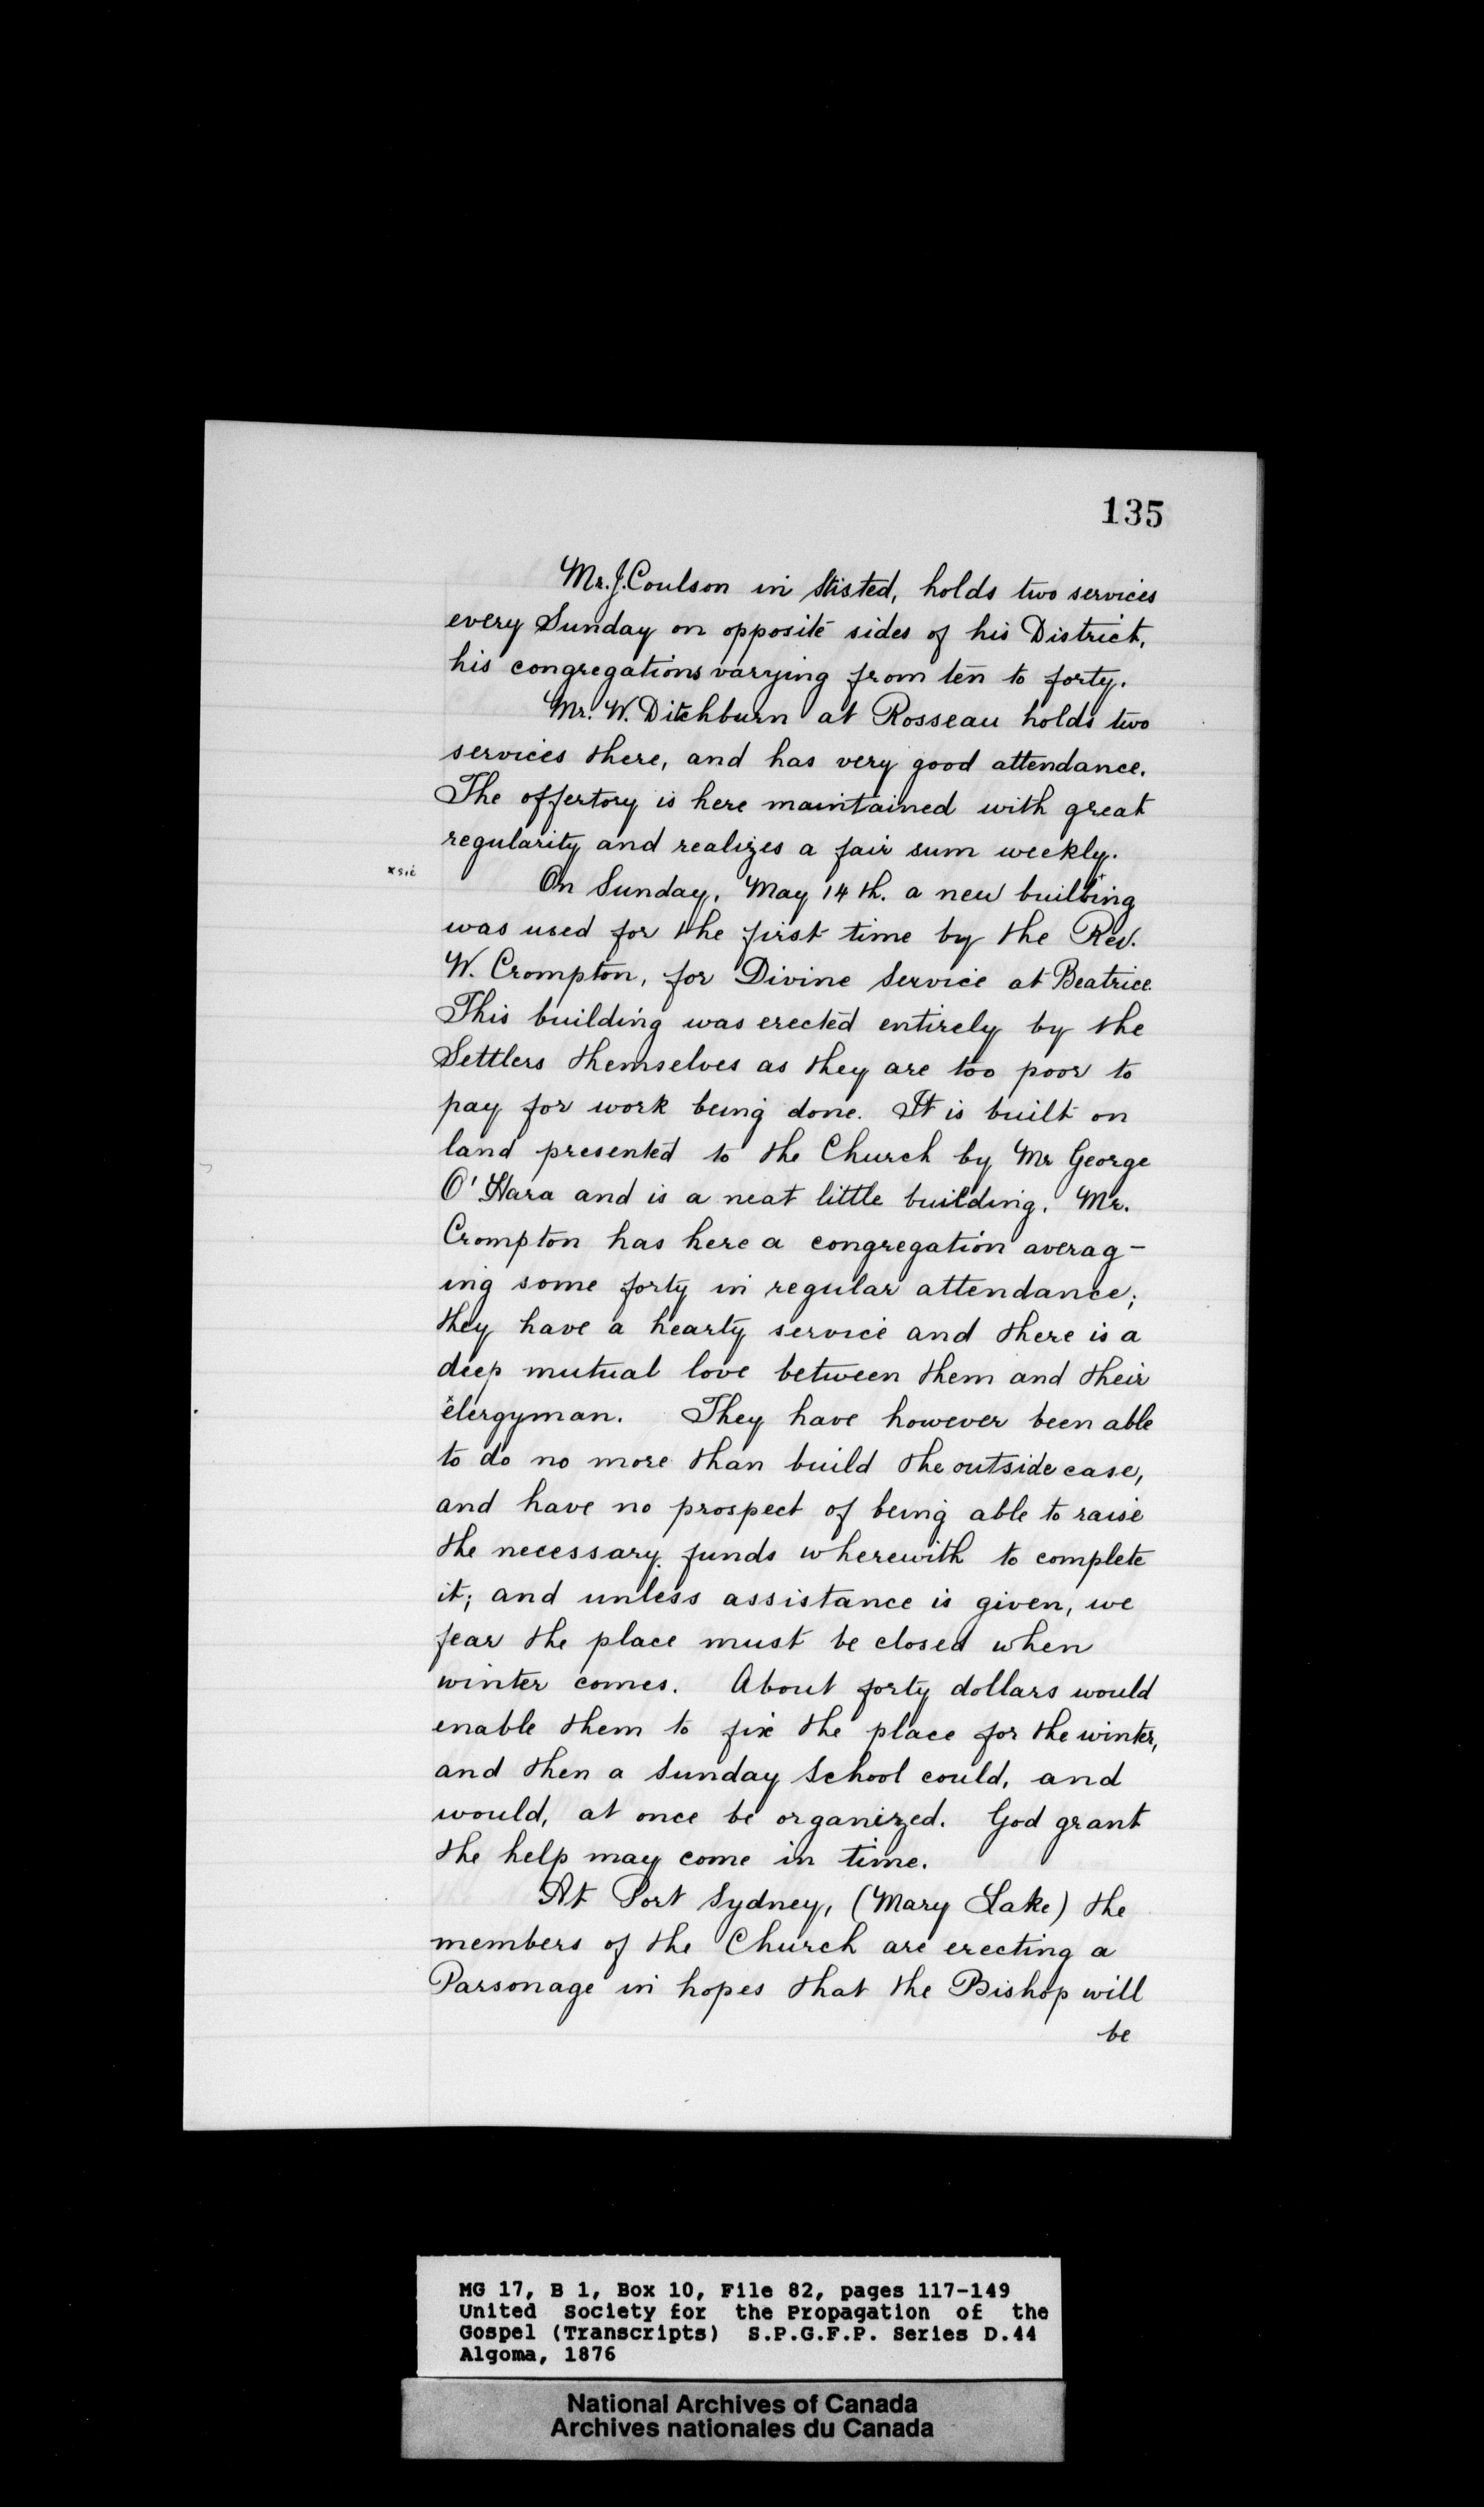 135
Mr. J. Coulson in Stisted, holds two services
every Sunday on opposite sides of his District,
his congregations varying from ten to forty.
Mr. W. Ditchburn at Rosseau holds two
services there, and has very good attendance.
The offertory is here maintained with great
regularity and realizes a fair sum weekly.
x sic
On Sunday, May 14th. a new builbing
was used for the first time by the Rev.
W. Crompton, for Divine Service at Beatrice.
This building was erected entirely by the
Settlers themselves as they are too poor to
pay for work being done. It is built on
land presented to the Church by Mr George
O'Hara and is a neat little building. Mr.
Crompton has here a congregation averag-
ing some forty in regular attendance;
they have a hearty service and there is a
deep mutual love between them and their
clergyman. They have however been able
to do no more than build the outside case,
and have no prospect of being able to raise
the necessary funds wherewith to complete
it; and unless assistance is given, we
fear the place must be closed when
winter comes. About forty dollars would
enable them to fix the place for the winter,
and then a Sunday School could, and
would, at once be organized. God grant
the help may come in time.
At Port Sydney, (Mary Lake) the
members of the Church are erecting a
Parsonage in hopes that the Bishop will
be
MG 17, B 1, Box 10, File 82, pages 117-149
United Society for the Propagation of the
Gospel (Transcripts) S.P.G.F.P. Series D.44
Algoma, 1876
National Archives of Canada
Archives nationales du Canada